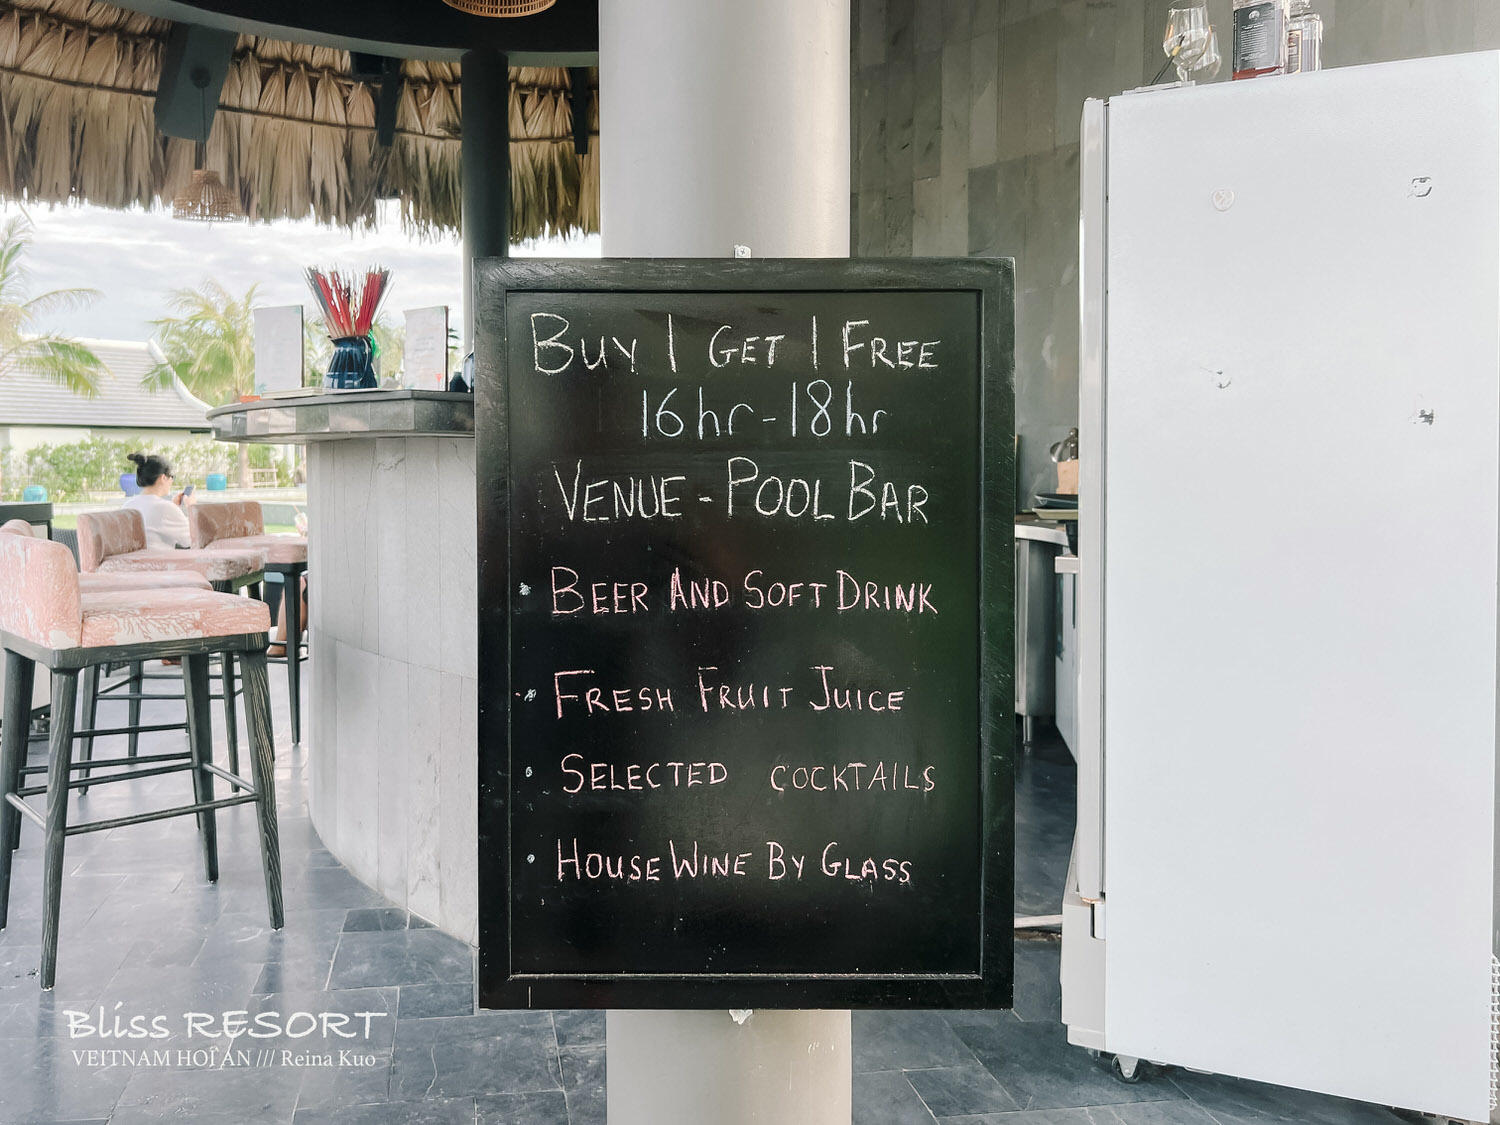 BUY 1 GET 1 FREE
16hr-18hr
VENUE - POOL BAR
BEER AND SOFT DRINK
FRESH FRUIT JUICE
SELECTED COCKTAILS
HOUSE WINE BY GLASS
Bliss RESORT
VEITNAM HOI AN /// Reina Kuo